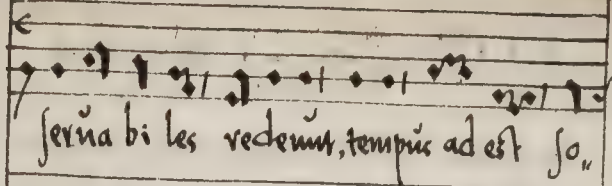 serua bi les rederunt, tempus ad est so,,